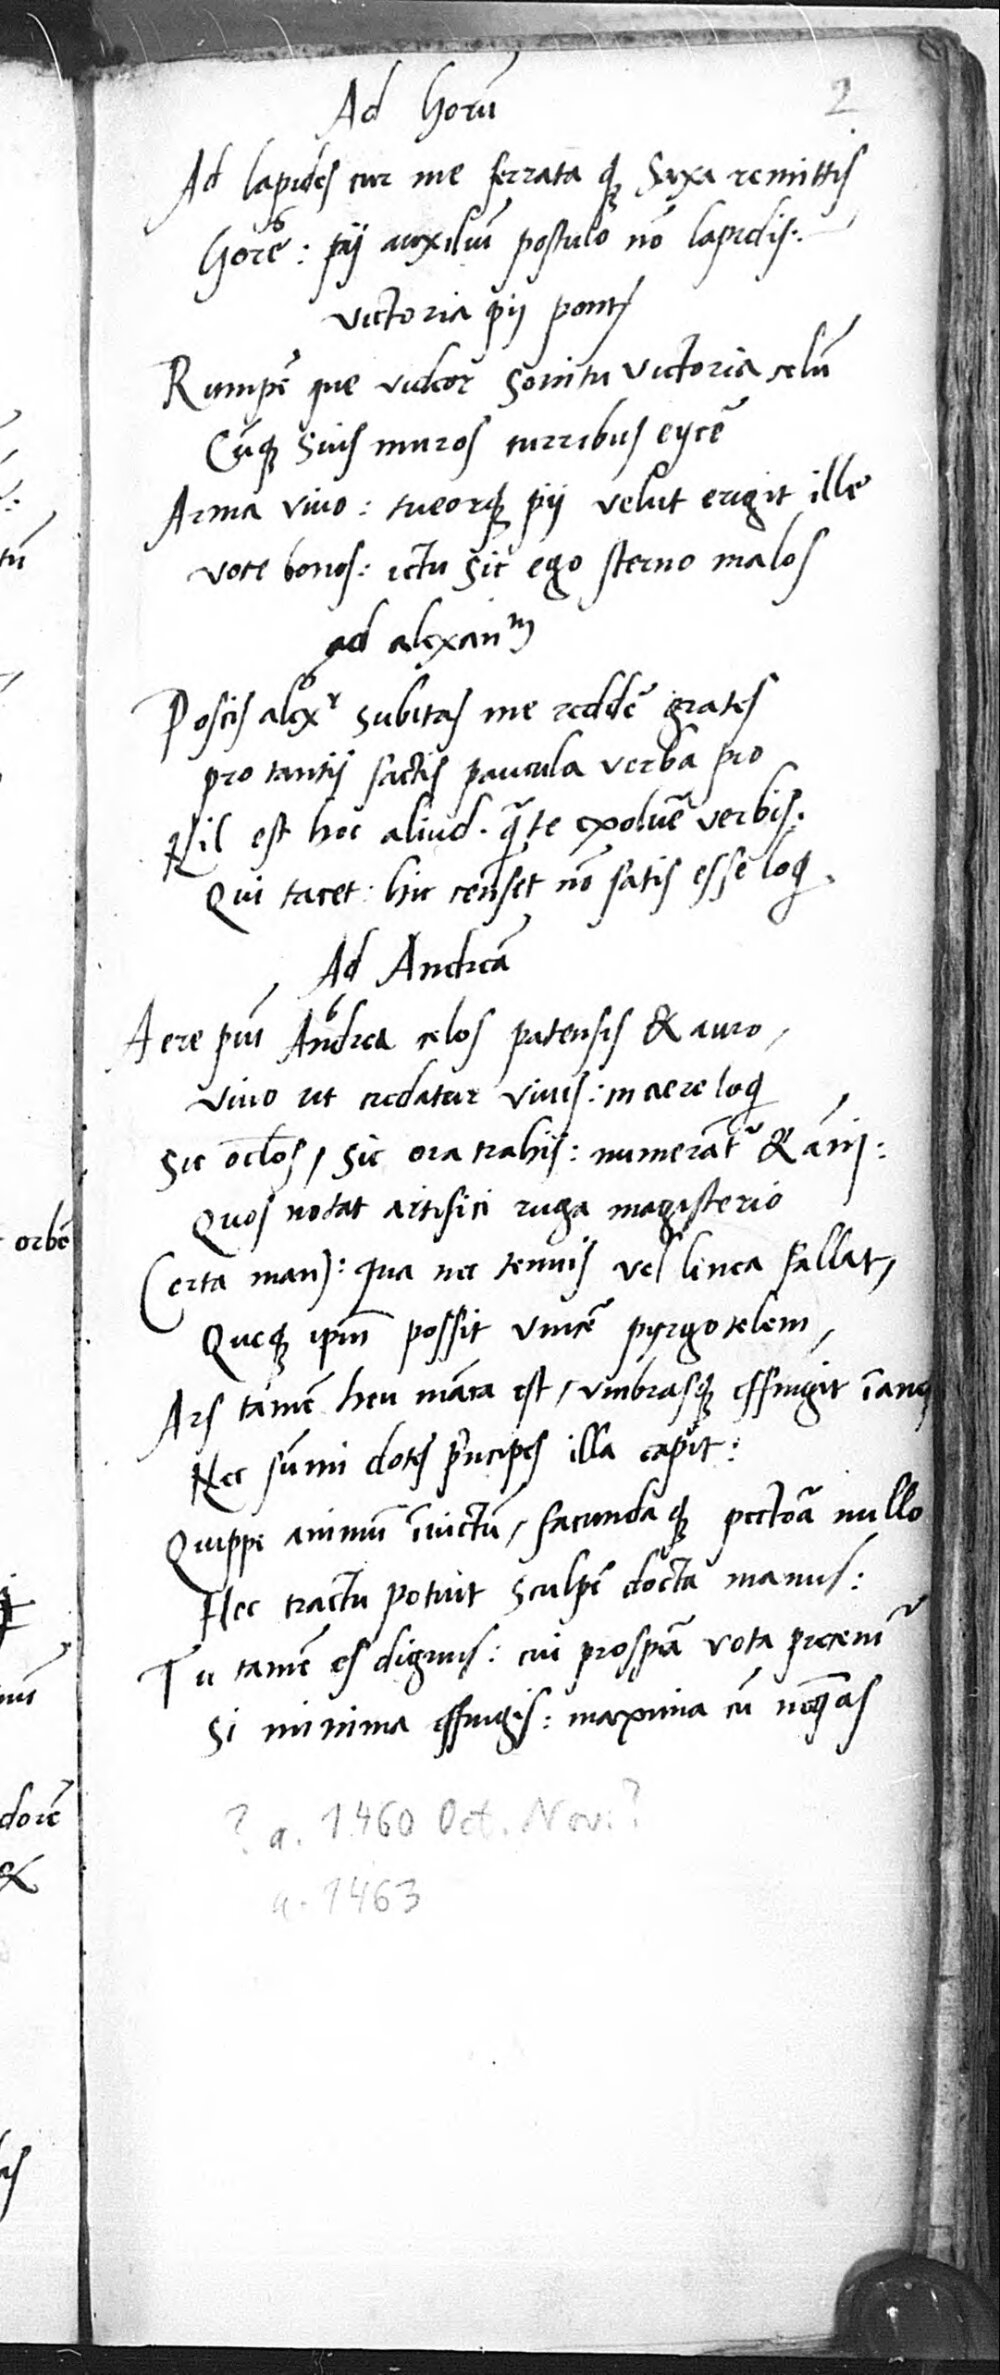 2
Ad Horū
Ad lapides cur me ferrata qꝫ saxa remittis
Horē: pij auxiliū postulo nō lapidis.
victoria pij pont
Rumpē que videor sonitu victoria celū
Cūqꝫ suis muros turribus eycē
Arma viuo: tueorqꝫ pij velut erigit ille
voce bonos: ictu sic ego sterno malos
ad alexanᵐ
Poscis alexʳ subitas me reddē grates
pro tantis factis paucula verba pro
Nil est hoc aliud. qͣ te exoluē verbis.
Qui tacet: hic censet nō satis esse loqi.
Ad Andreā
Aere piū Andrea celos patensis & auro,
viuo ut credatur viuis: in aere loqi
Sic oclos, sic ora trahis: numerātᷣ & ānis:
Quos notat artifici ruga magisterio
Certa manꝰ: qua nec tenuis vel linea fallat,
Queqꝫ ipm̄ possit vincē pyrgotelem,
Ars tamē heu māca est, vmbrasqꝫ effingit īanes
Nec sūmi dotes p̄ncipes illa capit:
Quippe animū īuictū, facundaqꝫ pectoā nullo
Nec tractu potuit sculpē docta manus:
Tu tamē es dignus: cui prospā vota precemᷣ
Si minima effingis: maxima cū neqas
? a. 1460 Oct. Nov.?
a. 1463
orbē
dorē
&